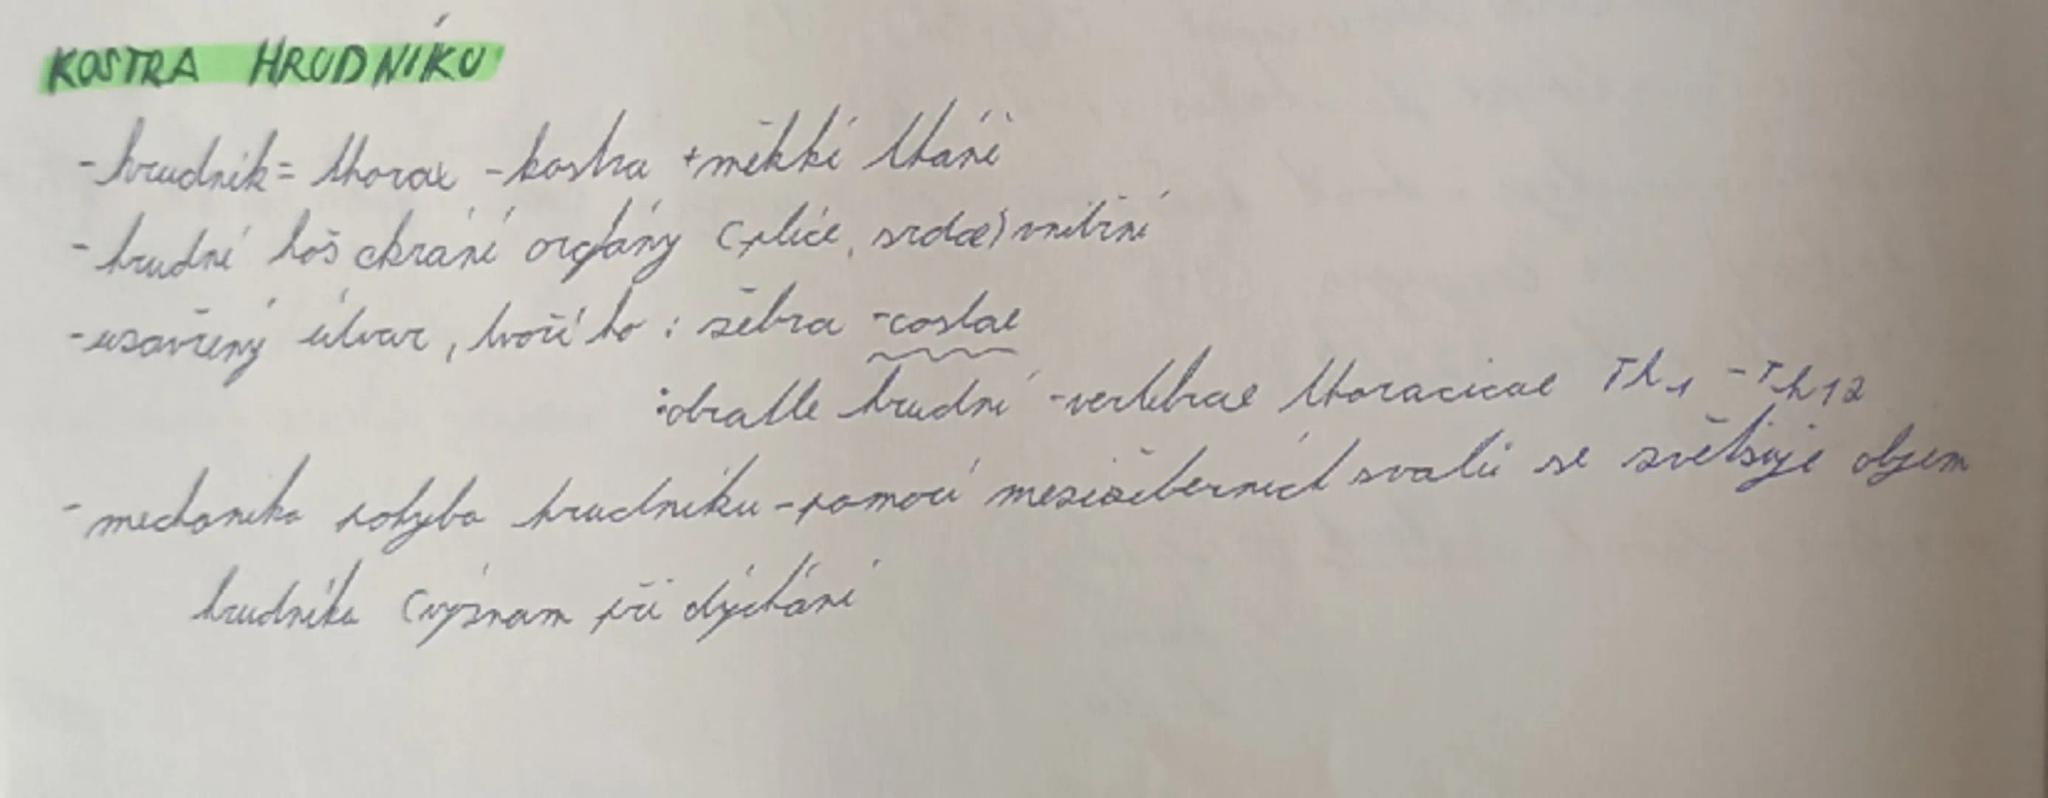 KOSTRA HRUDNÍKU
- hrudník = thorax - kostra + měkké tkáně
- hrudní koš chrání orgány (plíce, srdce) vnitřní
- uzavřený útvar, tvoří ho : žebra - costae
: obratle hrudní - vertebrae thoracicae Th1 - Th12
- mechanika pohybu hrudníku - pomocí mezižeberních svalů se zvětšuje objem
hrudníku (význam při dýchání